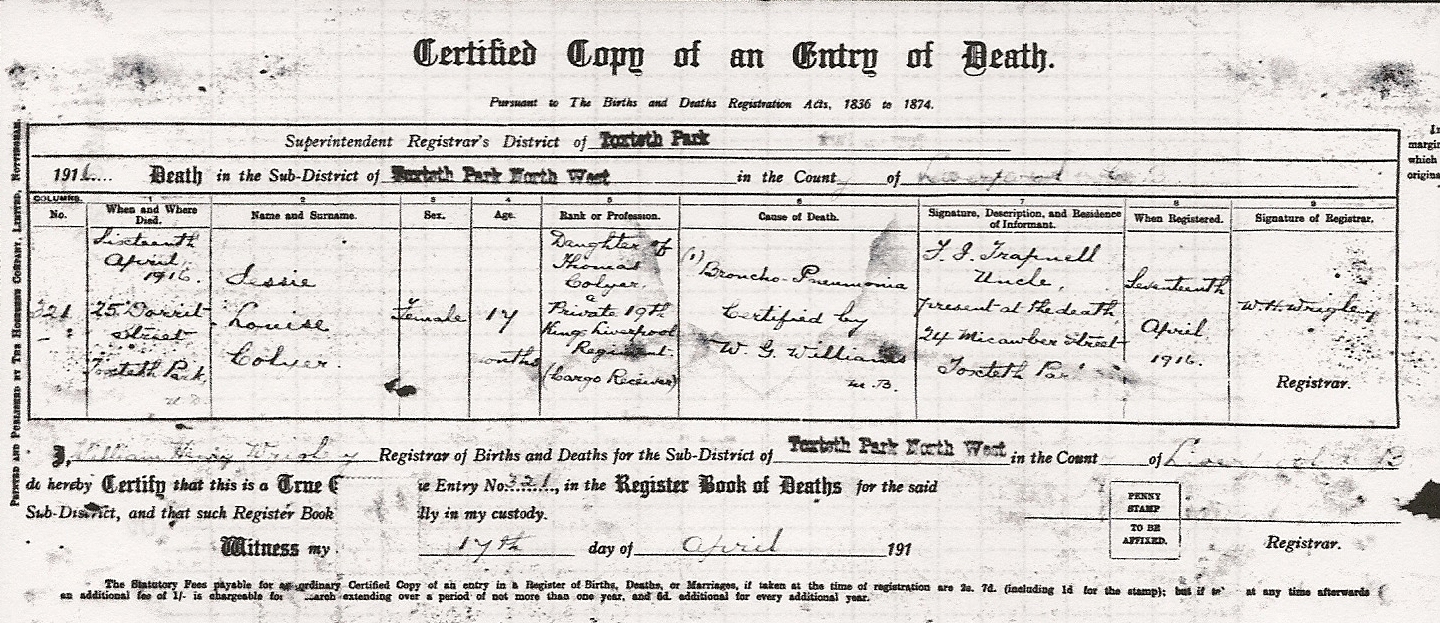 Certified Copy of an Entry of Death.
Pursuant to The Births and Deaths Registration Acts, 1836 to 1874.
Superintendent Registrar's District of Toxteth Park
1916.... Death in the Sub-District of Toxteth Park North West in the County of
COLUMNS. 1 2 3 4 5 6 7 8 9
No. When and Where Died. Name and Surname. Sex. Age. Rank or Profession. Cause of Death. Signature, Description, and Residence of Informant. When Registered. Signature of Registrar.
321
Sixteenth
April,
1916.
25 Dorrit
Street
Toxteth Park
U.D.
Jessie
Louise
Colyer.
Female
17
onths
Daughter of
Thomas
Colyer,
a
Private 19th
Kings Liverpool
Regiment.
(Cargo Receiver)
(1)
Broncho-Pneumonia
Certified by
W. G. Williams
M.B.
T. J. Trapnell
Uncle,
present at the death
24 Micawber Street
Toxteth Par
Seventeenth
April
1916.
W.H. Wrigley
Registrar.
I, William Henry Wrigley Registrar of Births and Deaths for the Sub-District of Toxteth Park North West in the Count of
do hereby Certify that this is a True C e Entry No. 321, in the Register Book of Deaths for the said
Sub-District, and that such Register Book lly in my custody.
Witness my 17th day of April 191
PENNY
STAMP
TO BE
AFFIXED.
Registrar.
The Statutory Fees payable for an ordinary Certified Copy of an entry in a Register of Births, Deaths, or Marriages, if taken at the time of registration are 2s. 7d. (including 1d for the stamp); but if at any time afterwards
an additional fee of 1/- is chargeable for search extending over a period of not more than one year, and 6d. additional for every additional year.
PRINTED AND PUBLISHED BY THE COMPANY, LIMITED, NOTTINGHAM.
In
margin
which
origina